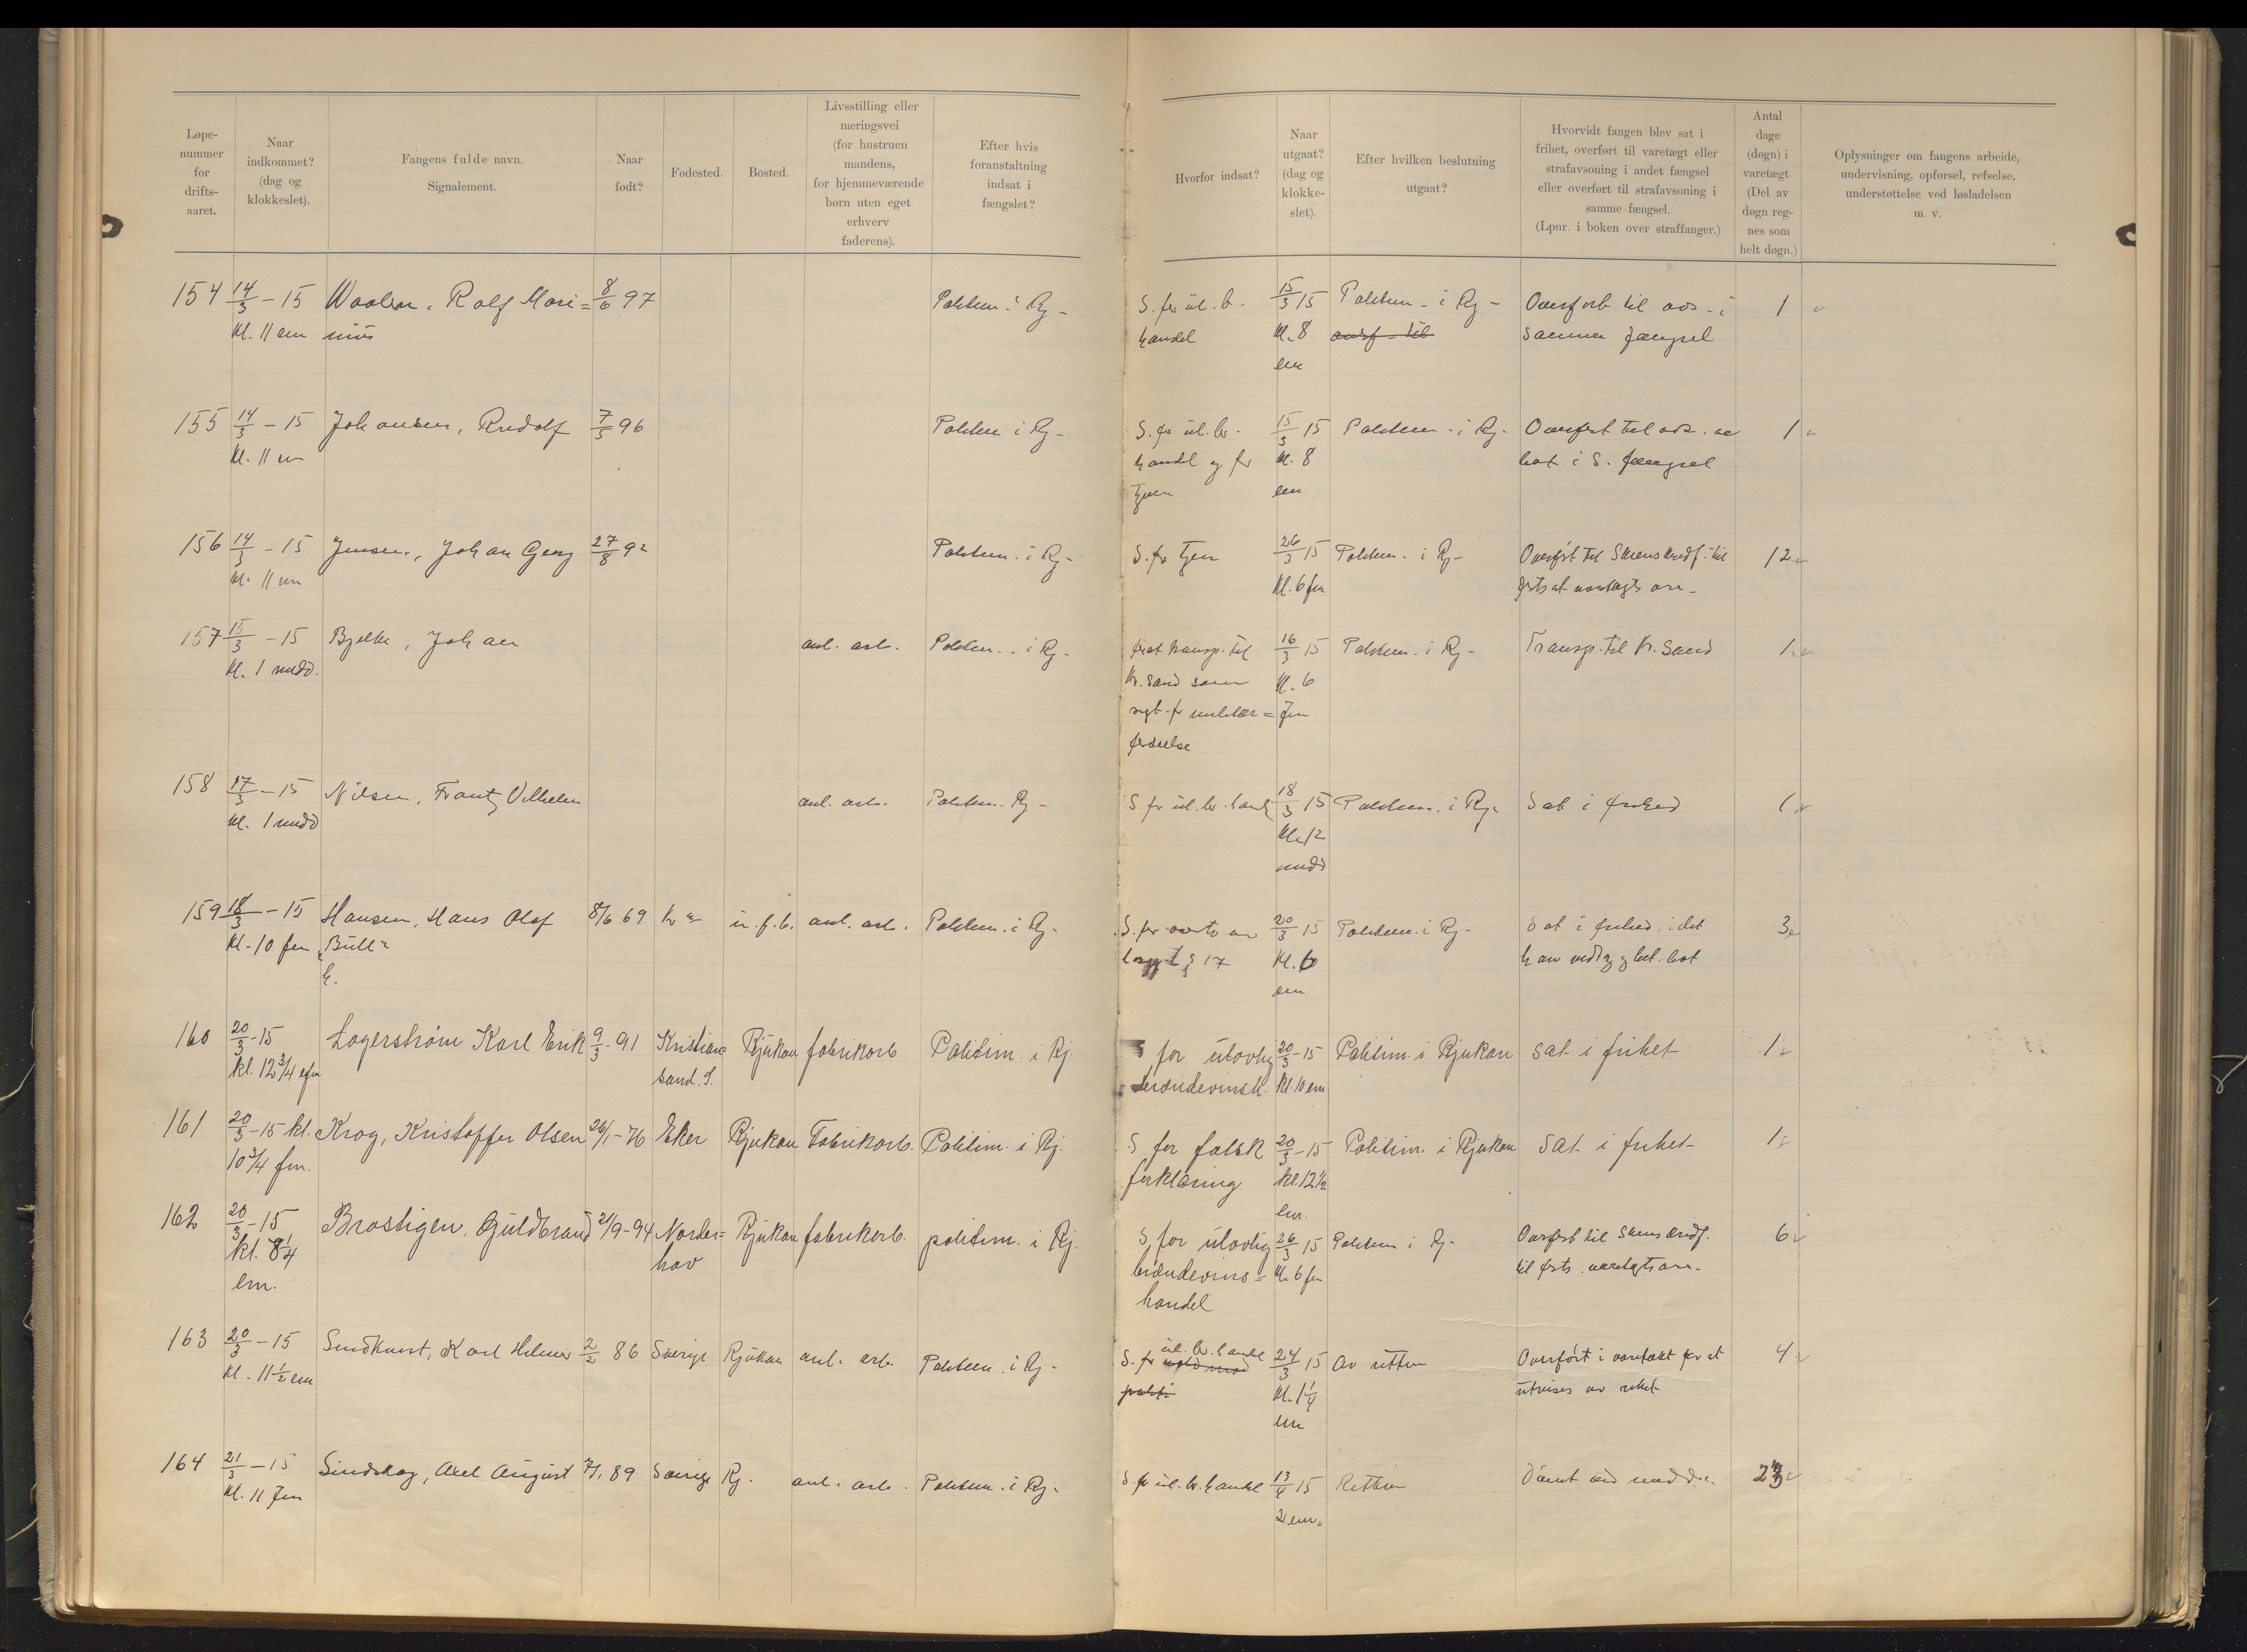 Løpe-
nummer
for
drifts-
aaret.
Naar
indkommet?
(dag og
klokkeslet).
Fangens fulde navn.
Signalement.
Naar
født?
Fødested.
Bosted.
Livsstilling eller
næringsvei
(for hustruen
mandens,
for hjemmeværende
børn uten eget
erhverv
faderens).
Efter hvis
foranstaltning
indsat i
fængslet?
Hvorfor indsat?
Naar
utgaat?
(dag og
klokke-
slet).
Efter hvilken beslutning
utgaat?
Hvorvidt fangen blev sat i
frihet, overført til varetægt eller
strafavsoning i andet fængsel
eller overført til strafavsoning i
samme fængsel.
(Lpnr. i boken over straffanger.)
Antal
dage
(døgn) i
varetægt
(Del av
døgn reg-
nes som
helt døgn.)
Oplysninger om fangens arbeide,
undervisning, opførsel, refselse,
understøttelse ved løsladelsen
m. v.
154 14/3 - 15 Rolf Mari= 8/6 97 Politim. i Rj - S. for ul. b. 15/3 15 Politim - i Rj - Overført til avs - i 1
kl. 11 em nius handel kl. 8 samme fængsel
em
155 14/3 - 15 Johansen, Rudolf 7/5 96 Politim i Rj - S. for ul. br. 15/3 15 Politim - i Rj - Overført til avs. av 1
kl. 11 em handel og for kl. 8 bot i S. fængsel
tyveri em
156 14/3 - 15 Jensen, Johan Georg 27/8 92 Politim. i Rj - S. for tyveri 26/3 15 Politim. i Rj - Overført til Skens kredsf. til 12
kl. 11 em kl. 6 fm forts at varetægts arr -
157 15/3 - 15 Bjelke, Johan anl. arb. Politim. i Rj - for at transp. til 16/3 15 Politim. i Rj - Transp. til Kr. Sand 1
kl. 1 midd. Kr. Sand som kl. 6
sigt. for militær = fm
forseelse
158 17/3 - 15 Nilsen, Frantz Vilhelm anl. arb. Politim. Rj - S. for ul. br. hand 18/3 15 Politim. i Rj - Sat i frihed 1
kl. 1 midd kl. 12
midd
159 18/3 - 15 Hansen, Hans Olaf 8/6 69 u. f. b. anl. arb. Politim. i Rj - S. for overtr av 20/3 15 Politim. i Rj - Sat i frihed, idet 3
kl - 10 fm § 17 kl. 6 han vedtog bet. bot
em
160 20/3 - 15 Lagerstrøm Karl Erik 9/3 - 91 Kristian= Rjukan fabrikarb Politim. i Rj. S for ulovlig 20/3 - 15 Politim. i Rjukan sat i frihet 1
kl. 12 3/4 efm sand. S. brændevinsh. kl. 10 em
161 20/3 - 15 kl. Krog, Kristoffer Olsen 26/1 - 76 Eker Rjukan Fabrikarb. Politim. i Rj. S for falsk 20/3 - 15 Politim. i Rjukan sat i frihet 1
10 3/4 fm. forklaring kl. 12 1/2
em.
162 20/3 - 15 Brostigen, Guldbrand 21/9 - 94 Norder= Rjukan fabrikarb. politim. i Rj. S, for ulovlig 26/3 15 Politim i Rj - Overført til Skens kredsf. 6
kl. 8 1/4 hov brændevins= kl. 6 fm til forts. varetægtsarr.
em. handel
163 20/3 - 15 Karl Hilmer 2/2 86 Sverige Rjukan anl. arb. Politim. i Rj - S. for ul. br. handel 24/3 15 Av retten Overført i varetækt for at 4
kl - 11 1/2 em politi kl. 1 1/4 utvises av riket
em
164 21/3 - 15 Axel August 7/1 89 Sverige Rj. anl. arb. Politim. i Rj. S for ul. br. handel 13/4 15 Retten Dømt
kl. 11 fm 2 em.